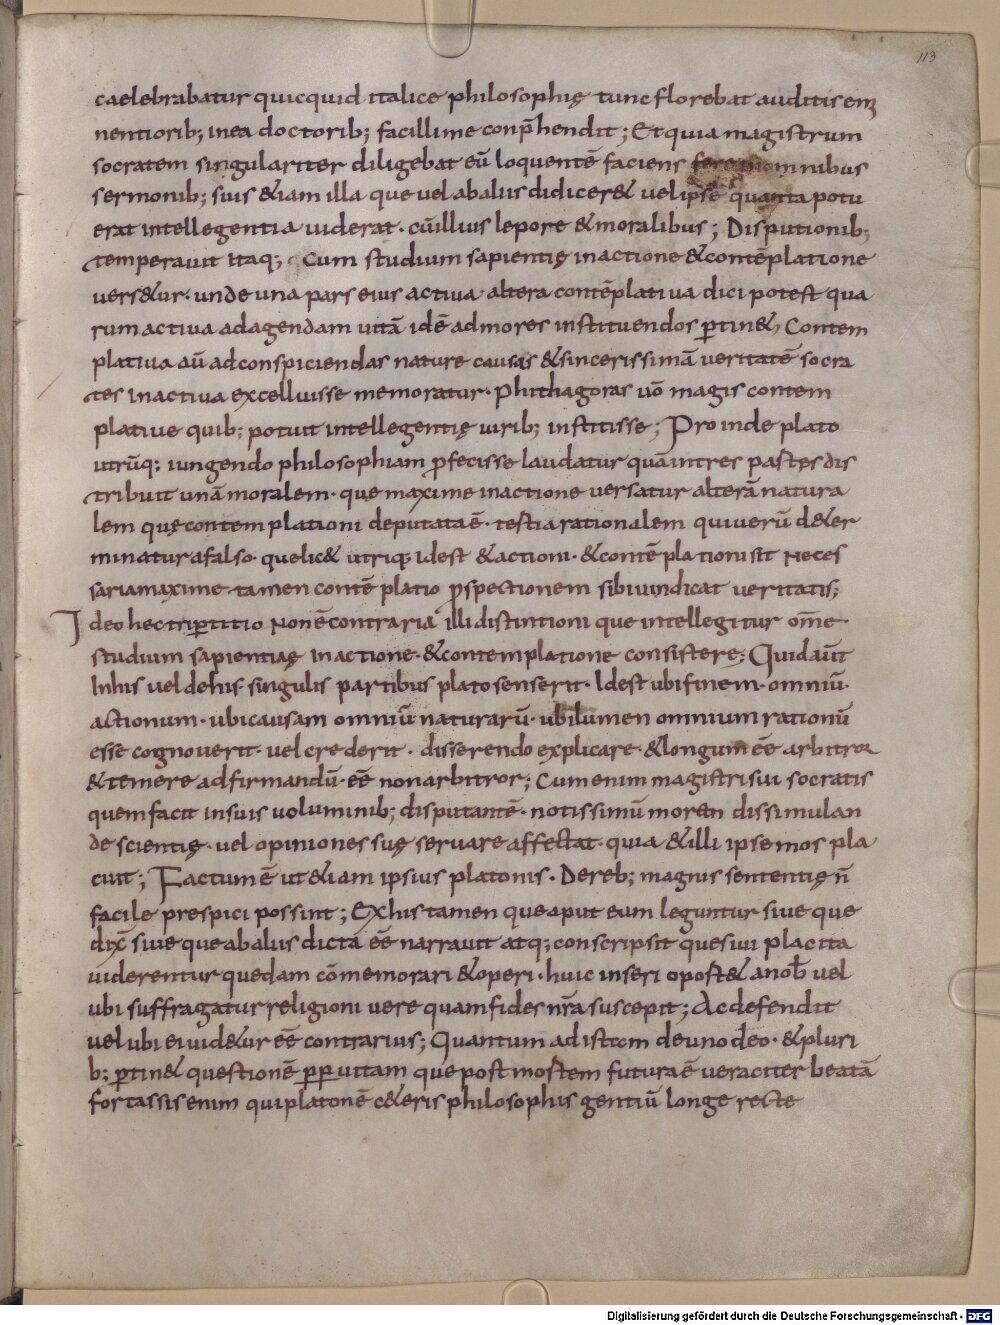 113
caelebrabatur quicquid italice philosophię tunc florebat auditis emi
nentiorib; in ea doctorib; facillime conp̄hendit; Et quia magistrum
socratem singulariter diligebat eū loquentē faciens fere in omnibus
sermonib; suis &iam illa que vel ab alus didicer& vel ipse quanta potu
erat intellegentia viderat· cū illius lepore & moralibus; Disputionib;
temperavit Itaq; Cum studium sapientię in actione & contēplatione
vers&ur· unde una pars eius activa altera contēplativa dici potest qua
rum activa ad agendam vitā idē ad mores instituendos p̱tin&, Contem
plativa aū ad conspiciendas nature causas & sincerissimā veritatē socra
tes in activa excelluisse memoratur· Phithagoras vō magis contem
plative quib; potuit intellegentię virib; institisse; Proinde plato
utrūq; iungendo philosophiam p̱fecisse laudatur quā in tres partes dis
tribuit unā moralem· que maxime in actione versatur alterā natura
lem quę contemplationi deputata ē· testia rationalem qui verū d&er
minatur a falso· que lic& utriq; id est & actioni· & contēplationi sit Neces
saria maxime tamen contēplatio p̱spectionem sibi vindicat veritatis;
Ideo hec trip̱titio Non ē contraria illi distintioni que intellegitur om̄e·
studium sapientiaę in actione· & contemplatione consistere; Quid aūt
In his vel de his singulis partibus plato senserit· Id est ubi finem· omniū·
actionum· ubi causam omniū naturarū· ubi lumen omnium rationū
esse cognoverit· vel crederit· disserendo explicare· & longum eē arbitror
& temere adfirmandū· eē non arbitror; Cum enim magistri sui socratis
quem facit in suis voluminib; disputantē· notissimū moren dissimulan
de scientię· vel opiniones suę servare affectat· quia & illi ipse mos pla
cuit; Factum ē ut &iam ipsius platonis· De reb; magnis sententię n̄
facile prespici possint; Ex his tamen que aput eum leguntur sive que
dix̄ sive que ab alus dicta eē narravit atq; conscripsit que sivi placita
viderentur quedam cōmemorari & operi· huic inseri oportet& a nob̄ vel
ubi suffragatur religioni vere quam fides nr̄a suscepit; Ac defendit
vel ubi ei vid&ur eē contrarius; Quantum ad istam de uno deo· & pluri
b; p̱tin& questionē p̱p̱ vitam que post mortem futura ē veraciter beatā
fortassis enim qui platonē c&eris philosophis gentiū longe recte
Digitalisierung gefördert durch die Deutsche Forschungsgemeinschaft - DFG